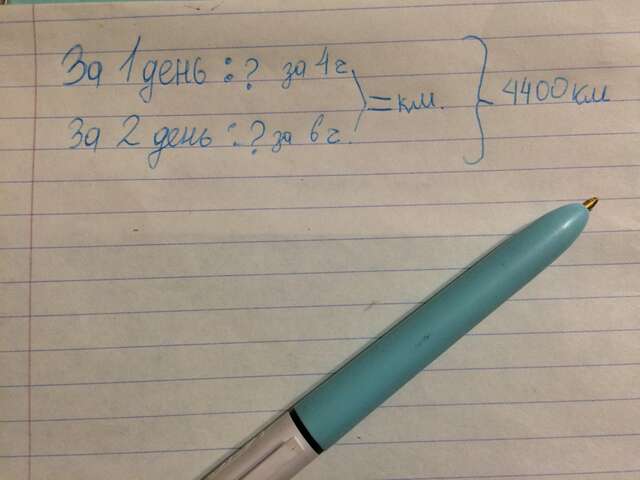 За 1 день : ? за 4 г. } = км. } 4400 км
За 2 день : ? за 6 г.